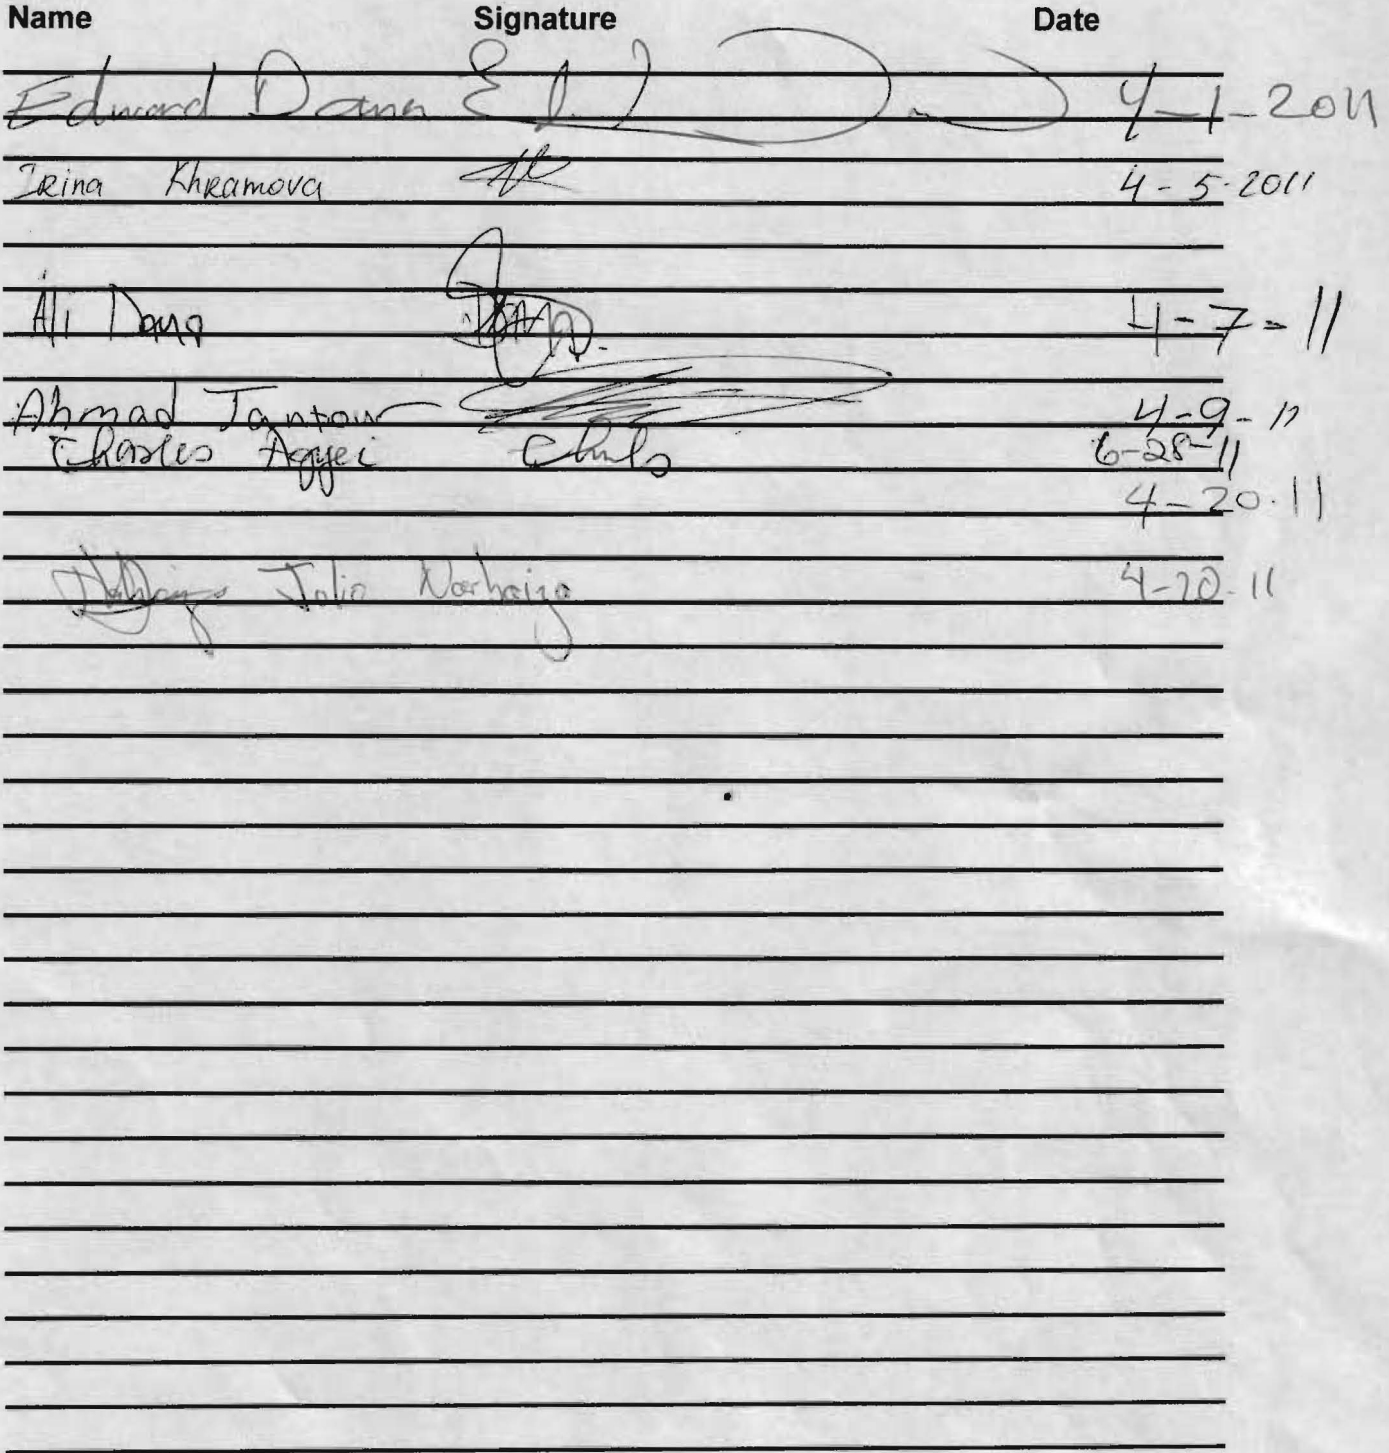 Name Signature Date
Edward 4-1-2011
Irina Khramova 4-5-2011
Ali 4-7-11
Ahmad 4-9-11
Charles Agyei 6-28-11
4-20-11
Julio 4-20-11